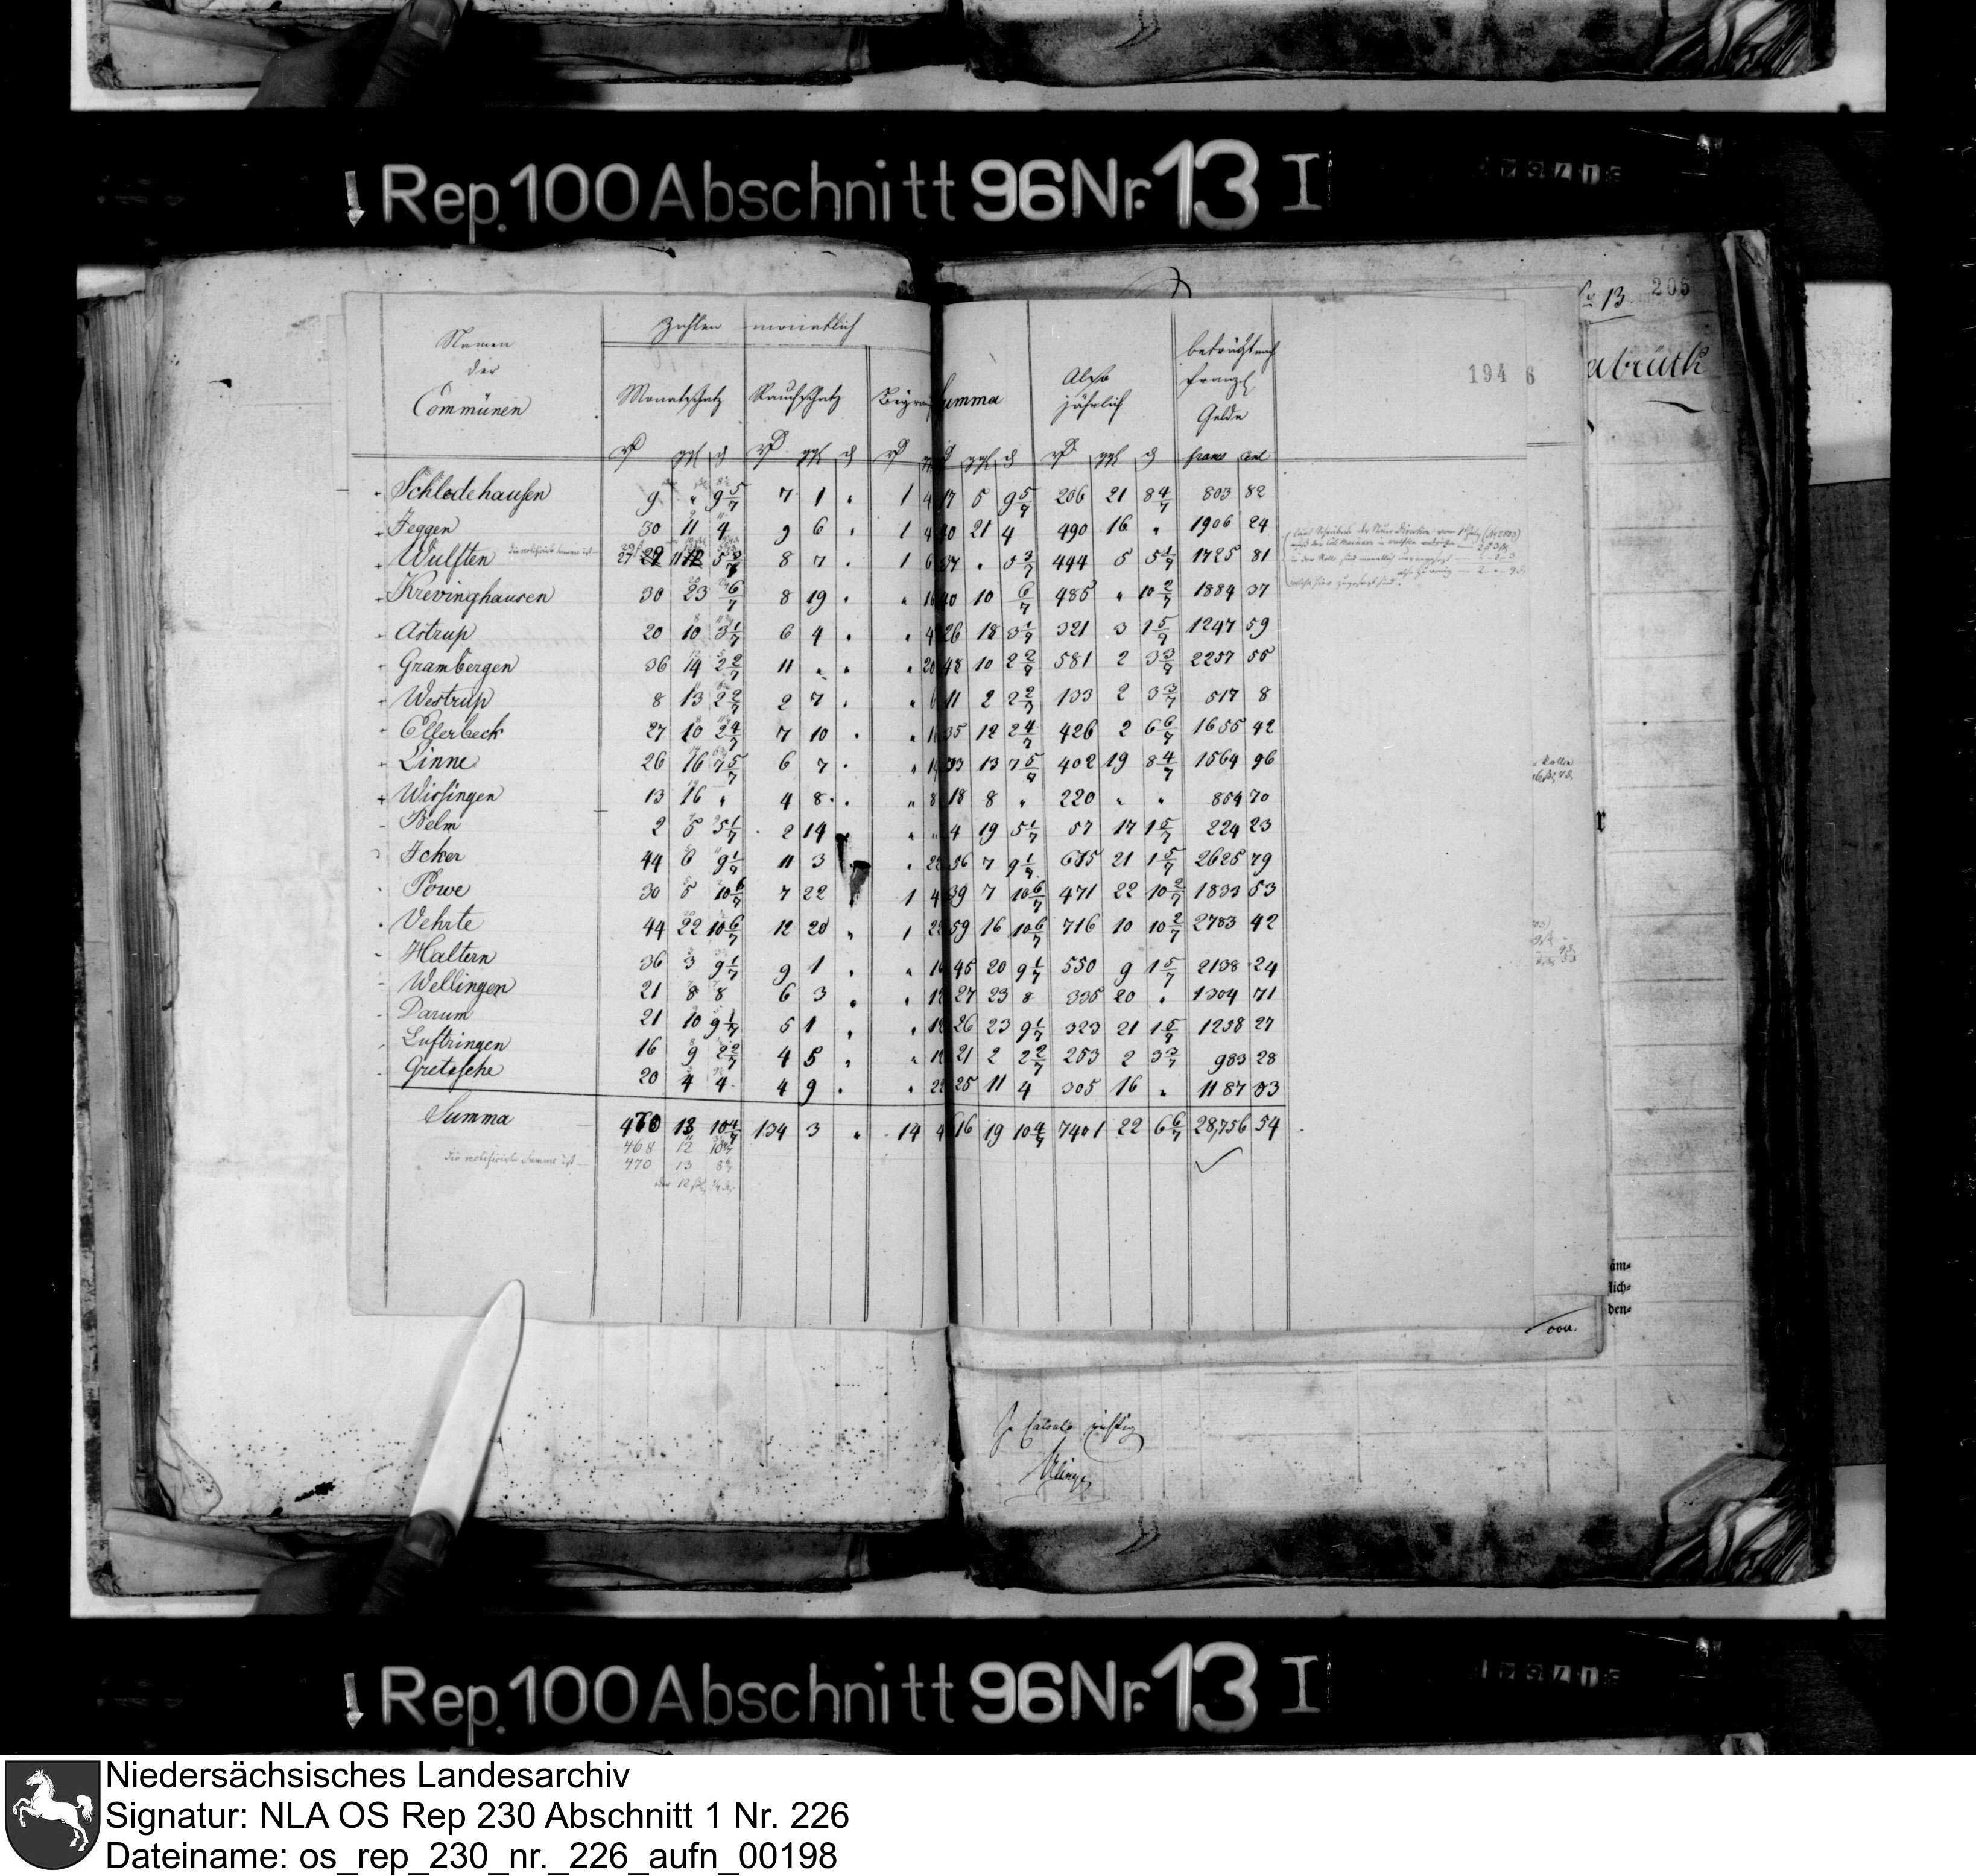 Rep. 100 Abschnitt 96 Nr. 13 I
No 13 205
194 6
abrück
Zahlen monatlich
Namen der Communen
Monatschatz Rauchschatz Summa Also jährlich beträgt nach franz. Gelde
franc cent
Schledehausen 9 " 9 5/7 7 1 " 1 4 17 5 9 5/7 206 21 8 4/7 803 82
Jeggen 30 11 4 9 6 " 1 4 40 21 4 490 16 " 1906 24
Wulften 8 7 " 1 6 37 " 5 3/7 444 5 5 1/7 1725 81
Krevinghausen 30 23 6/7 8 19 " " 16 40 10 6/7 485 " 10 2/7 1884 37
Astrup 20 10 3 1/7 6 4 " " 4 26 18 3 1/7 321 3 1 5/7 1247 59
Grambergen 36 14 2 2/7 11 " " " 20 48 10 2 2/7 581 2 3 3/7 2257 55
Westrup 8 13 2 2/7 2 7 " " 6 11 2 2 2/7 133 2 3 3/7 517 8
Ellerbeck 27 10 2 4/7 7 10 " " 16 35 12 2 4/7 426 2 6 6/7 1655 42
Linne 26 16 7 5/7 6 7 " " 14 33 13 7 5/7 402 19 8 4/7 1564 96
Wissingen 13 16 " 4 8 " " 8 18 8 " 220 " " 854 70
Belm 2 5 5 1/7 2 14 " " " 4 19 5 1/7 57 17 1 5/7 224 23
Icker 44 6 9 1/7 11 3 " " 22 56 7 9 1/7 675 21 1 5/7 2625 79
Powe 30 5 10 6/7 7 22 1 4 39 7 10 6/7 471 22 10 2/7 1833 53
Vehrte 44 22 10 6/7 12 20 " 1 22 59 16 10 6/7 716 10 10 2/7 2783 42
Haltern 36 3 9 1/7 9 1 " " 16 45 20 9 1/7 550 9 1 5/7 2138 24
Wellingen 21 8 8 6 3 " " 12 27 23 8 335 20 " 1304 71
Darum 21 10 9 1/7 5 1 " " 12 26 23 9 1/7 323 21 1 5/7 1258 27
Luftringen 16 9 2 2/7 4 5 " " 12 21 2 2 2/7 253 2 3 3/7 983 28
Gretesche 20 4 4 4 9 " " 22 25 11 4 305 16 " 1187 53
Summa 470 13 10 4/7 134 3 " 14 4 616 19 10 4/7 7401 22 6 6/7 28,756 54
468 12
470 13
In Calculo richtig
Rep. 100 Abschnitt 96 Nr. 13 I
Niedersächsisches Landesarchiv
Signatur: NLA OS Rep 230 Abschnitt 1 Nr. 226
Dateiname: os_rep_230_nr._226_aufn_00198